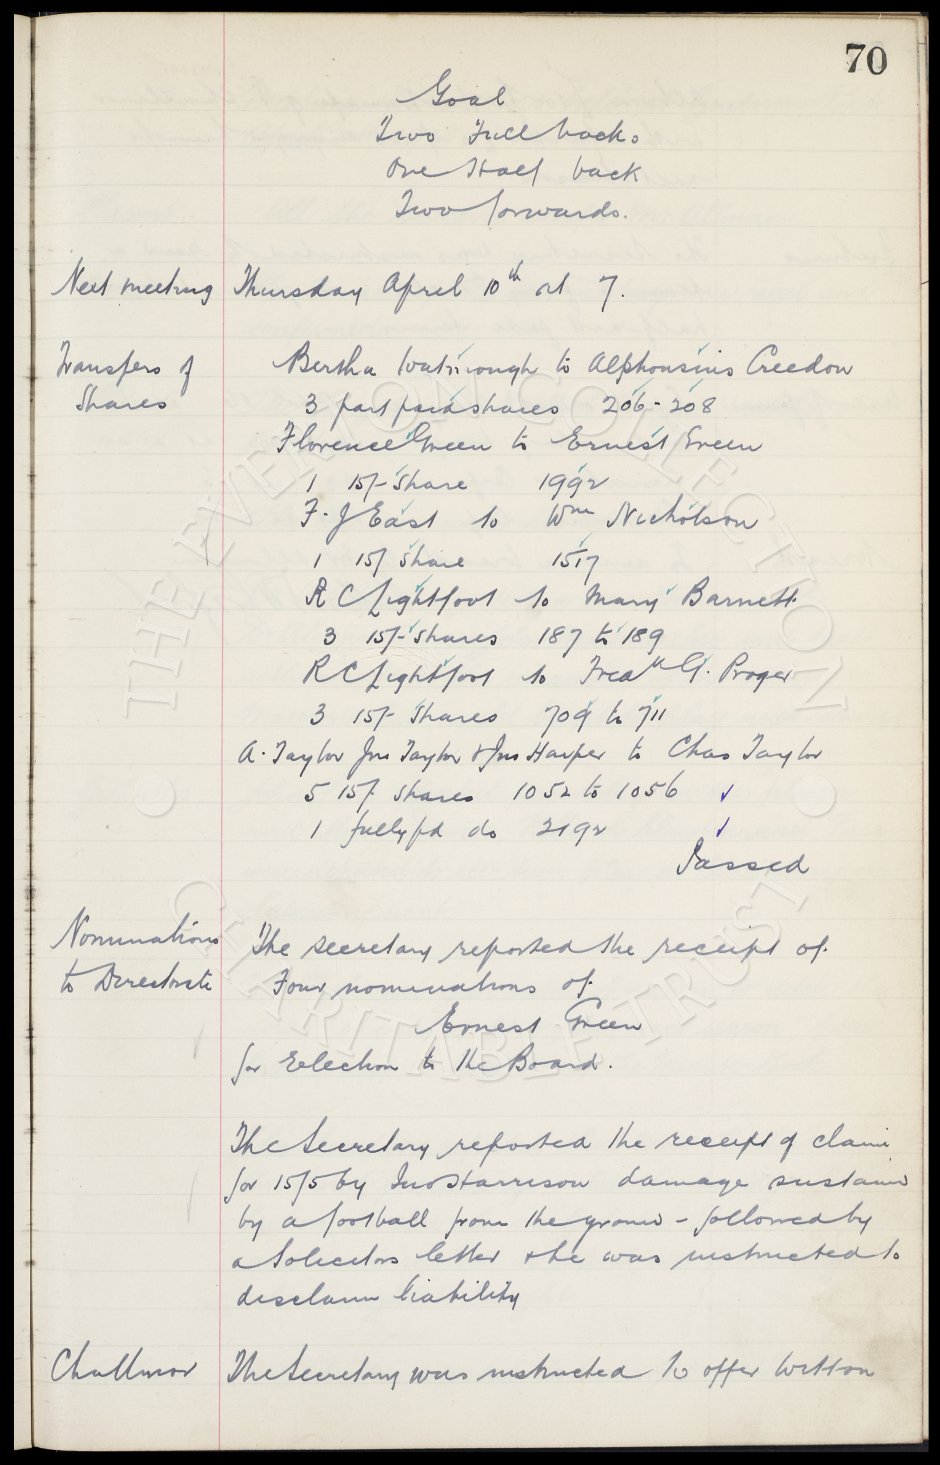 70
Goal
Two Full backs
One Half back
Two forwards.
Next meeting Thursday April 10th at 7.
Transfers of Shares
Bertha Watmough to Alphonsius Creedon
3 part paid shares 206-208
Florence Green to Ernest Green
1 15/- Share 1992
F. J East to Wm Nicholson
1 15/ Share 1517
R C Lightfoot to Mary Barnett
3 15/- Shares 187 to 189
R C Lightfoot to Fredk G. Proger
3 15/- Shares 709 to 711
A. Taylor Jno Taylor & Jno Harper to Chas Taylor
5 15/- Shares 1052 to 1056
1 fully pd do 2192
Passed
Nominations to Directorate
The Secretary reported the receipt of
Four nominations of
Ernest Green
for Election to the Board.
The Secretary reported the receipt of claim
for 15/5 by Jno Harrison damage sustained
by a football from the ground - followed by
a Solicitors letter & he was instructed to
disclaim liability
The Secretary was instructed to offer Witton
THE EVERTON COLLECTION
CHARITABLE TRUST